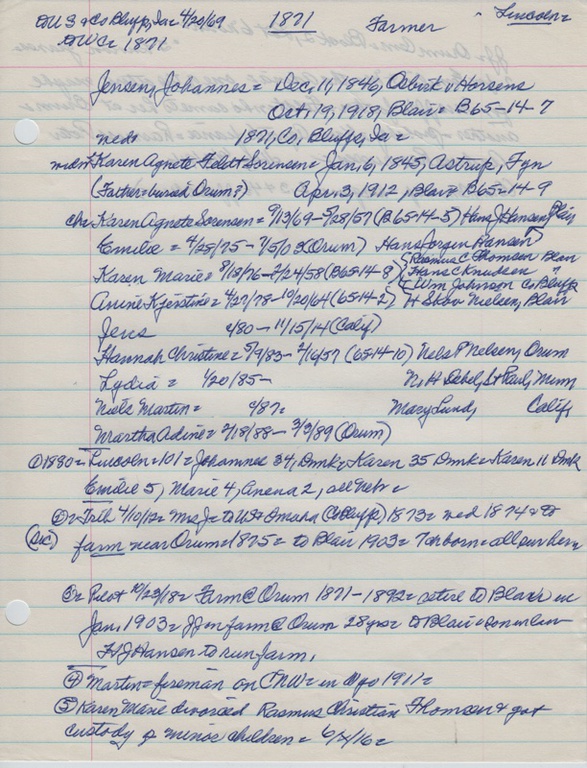 DU S & Co Bluffs, Ia = 4/20/69 1871 Farmer Lincoln =
DWC = 1871
Jensen, Johannes = Dec, 11, 1846, Horsens
Oct, 19, 1918, Blair = B65-14-7
wed = 1871, Co, Bluffs, Ia =
Karen Agnete Sorensen = Jan, 6, 1845, Astrup, Fyn
(Father = buried Orum?) Apr, 3, 1912, Blair = B65=14-9
ch = Karen Agnete Sorensen = 9/13/69 - 5/28/57 (B65-14-5) Hans J Hansen, Blair
Emilie = 4/25/75 - 7/5/03 (Orum) Hans Jorgen Hansen
Karen Marie = 8/18/76 - 2/24/58 (B65-14-8) { Rasmus C Thomsen Blair
{ Hans C Knudsen "
{ Wm Johnson Co Bluffs
Anine Kjerstine = 4/27/78 - 10/20/64 (65-14-2) H Skov Nielsen, Blair
Jens 4/80 - 11/15/14 (Calif)
Hannah Christine = 5/9/83 - 2/16/57 (65-14-10) Nels P Nelsen, Orum
Lydia = 1/20/85 - N H Debel, St Paul, Minn
Niels Martin = 4/87 = Mary Lund, Calif,
Martha Adine = 2/18/88 - 3/3/89 (Orum)
① 1880 = Lincoln = 101 = Johannes 34, Dmk = Karen 35 Dmk = Karen 11 Dmk
Emilie 5, Marie 4, Anena 2, all Nebr =
② = Trib 4/10/12 = Mrs J = to US & Omaha (Co Bluffs) 1873 = wed 1874 = to
(sic) farm near Orum = 1875 = to Blair 1903 = 7 ch born = all survive
③ = Pilot 10/23/18 = Farm @ Orum 1871 - 1892 = retire to Blair in
Jan, 1903 = on farm @ Orum 28 yrs = to Blair = son in law
H J Hansen to run farm,
④ Martin = foreman on CNW = in Wyo 1911 =
⑤ Karen Marie divorced Rasmus Christian Thomsen & got
custody of minor children = 6/7/16 =